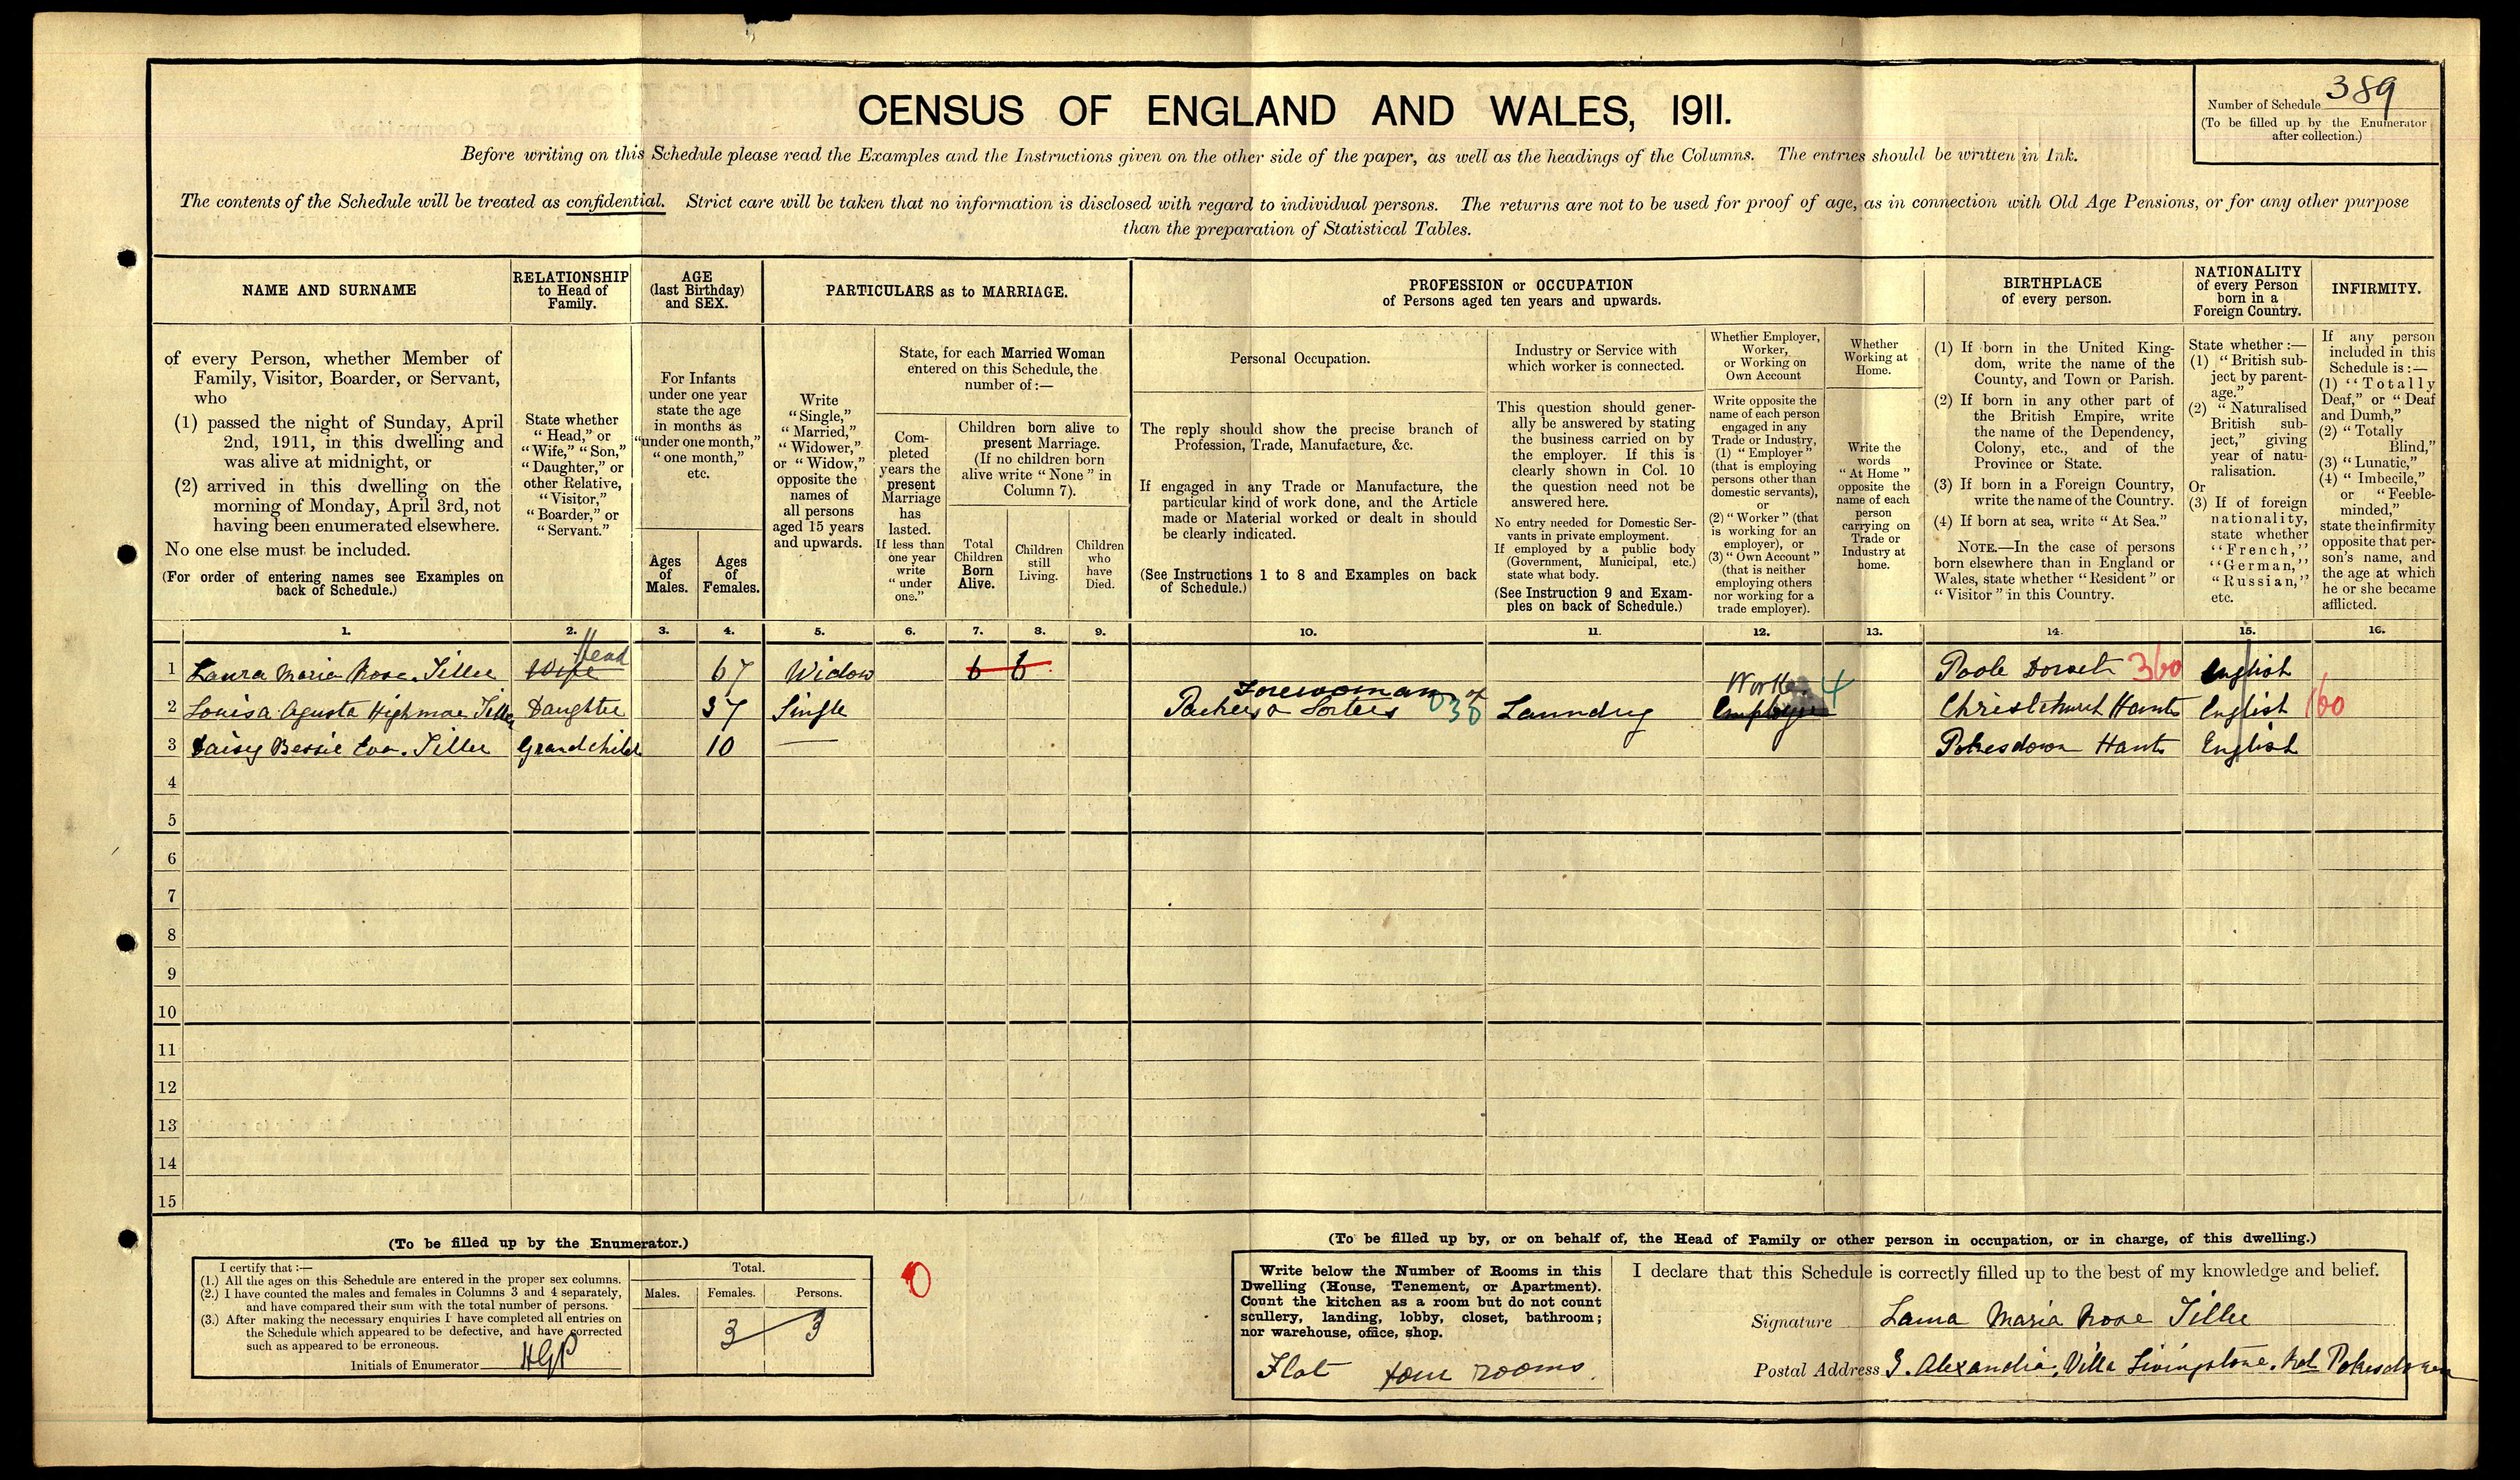 Number of Schedule 389
(To be filled up by the Enumerator
after collection.)
CENSUS OF ENGLAND AND WALES, 1911.
Before writing on this Schedule please read the Examples and the Instructions given on the other side of the paper, as well as the headings of the Columns. The entries should be written in Ink.
The contents of the Schedule will be treated as confidential. Strict care will be taken that no information is disclosed with regard to individual persons. The returns are not to be used for proof of age, as in connection with Old Age Pensions, or for any other purpose
than the preparation of Statistical Tables.
NAME AND SURNAME
of every Person, whether Member of
Family, Visitor, Boarder, or Servant,
who
(1) passed the night of Sunday, April
2nd, 1911, in this dwelling and
was alive at midnight, or
(2) arrived in this dwelling on the
morning of Monday, April 3rd, not
having been enumerated elsewhere.
No one else must be included.
(For order of entering names see Examples on
back of Schedule.)
RELATIONSHIP
to Head of
Family.
State whether
"Head," or
"Wife," "Son,"
"Daughter," or
other Relative,
"Visitor,"
"Boarder," or
"Servant."
AGE
(last Birthday)
and SEX.
For Infants
under one year
state the age
in months as
"under one month,"
"one month,"
etc.
Ages
of
Males.
Ages
of
Females.
PARTICULARS as to MARRIAGE.
Write
"Single,"
"Married,"
"Widower,"
or "Widow,"
opposite the
names of
all persons
aged 15 years
and upwards.
State, for each Married Woman
entered on this Schedule, the
number of:—
Com-
pleted
years the
present
Marriage
has
lasted.
If less than
one year
write
"under
one."
Children born alive to
present Marriage.
(If no children born
alive write "None" in
Column 7).
Total
Children
Born
Alive.
Children
still
Living.
Children
who
have
Died.
PROFESSION or OCCUPATION
of Persons aged ten years and upwards.
Personal Occupation.
The reply should show the precise branch of
Profession, Trade, Manufacture, &c.
If engaged in any Trade or Manufacture, the
particular kind of work done, and the Article
made or Material worked or dealt in should
be clearly indicated.
(See Instructions 1 to 8 and Examples on back
of Schedule.)
Industry or Service with
which worker is connected.
This question should gener-
ally be answered by stating
the business carried on by
the employer. If this is
clearly shown in Col. 10
the question need not be
answered here.
No entry needed for Domestic Ser-
vants in private employment.
If employed by a public body
(Government, Municipal, etc.)
state what body.
(See Instruction 9 and Exam-
ples on back of Schedule.)
Whether Employer,
Worker,
or Working on
Own Account
Write opposite the
name of each person
engaged in any
Trade or Industry,
(1) "Employer"
(that is employing
persons other than
domestic servants),
or
(2) "Worker" (that
is working for an
employer), or
(3) "Own Account"
(that is neither
employing others
nor working for a
trade employer).
Whether
Working at
Home.
Write the
words
"At Home"
opposite the
name of each
person
carrying on
Trade or
Industry at
home.
BIRTHPLACE
of every person.
(1) If born in the United King-
dom, write the name of the
County, and Town or Parish.
(2) If born in any other part of
the British Empire, write
the name of the Dependency,
Colony, etc., and of the
Province or State.
(3) If born in a Foreign Country,
write the name of the Country.
(4) If born at sea, write "At Sea."
NOTE.—In the case of persons
born elsewhere than in England or
Wales, state whether "Resident" or
"Visitor" in this Country.
NATIONALITY
of every Person
born in a
Foreign Country.
State whether:—
(1) "British sub-
ject by parent-
age."
(2) "Naturalised
British sub-
ject," giving
year of natu-
ralisation.
Or
(3) If of foreign
nationality,
state whether
"French,"
"German,"
"Russian,"
etc.
INFIRMITY.
If any person
included in this
Schedule is:—
(1) "Totally
Deaf," or "Deaf
and Dumb,"
(2) "Totally
Blind,"
(3) "Lunatic,"
(4) "Imbecile,"
or "Feeble-
minded,"
state the infirmity
opposite that per-
son's name, and
the age at which
he or she became
afflicted.
1. 2. 3. 4. 5. 6. 7. 8. 9. 10. 11. 12. 13. 14. 15. 16.
Head
1 Laura Maria Rose Tiller Wife 67 Widow 6 6 Poole Dorset 360 English
Forewoman of Worker 4
2 Louisa Agusta Highmoe Tiller Daughter 37 Single Packers & Sorters 030 Laundry Employer Christchurch Hants English 160
3 Daisy Bessie Eva Tiller Grandchild 10 — Pokesdown Hants English
4
5
6
7
8
9
10
11
12
13
14
15
(To be filled up by the Enumerator.)
I certify that:—
(1.) All the ages on this Schedule are entered in the proper sex columns.
(2.) I have counted the males and females in Columns 3 and 4 separately,
and have compared their sum with the total number of persons.
(3.) After making the necessary enquiries I have completed all entries on
the Schedule which appeared to be defective, and have corrected
such as appeared to be erroneous.
Initials of Enumerator HGP
Total.
Males. Females. Persons.
3 3
0
(To be filled up by, or on behalf of, the Head of Family or other person in occupation, or in charge, of this dwelling.)
Write below the Number of Rooms in this
Dwelling (House, Tenement, or Apartment).
Count the kitchen as a room but do not count
scullery, landing, lobby, closet, bathroom;
nor warehouse, office, shop.
Flat four rooms.
I declare that this Schedule is correctly filled up to the best of my knowledge and belief.
Signature Laura Maria Rose Tiller
Postal Address Alexandia Villa Livingstone Rd Pokesdown